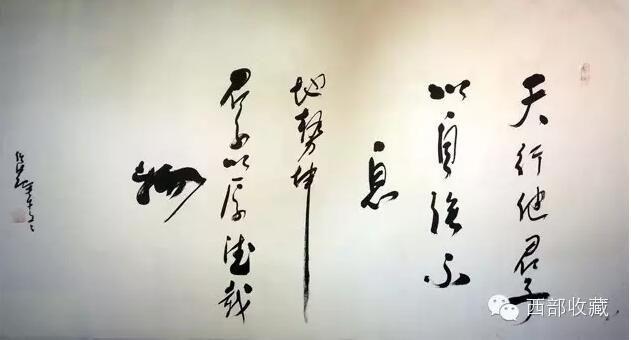 天行健君子
以自强不
息
地勢坤
君子以厚德載
物
西部收藏